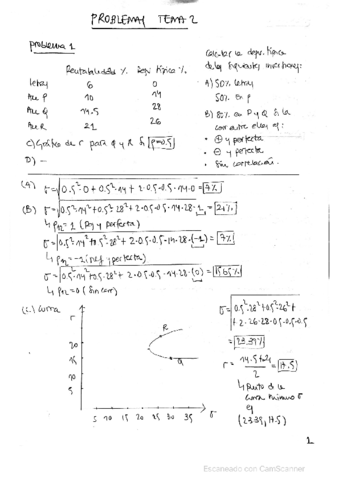 PROBLEMAS TEMA 2
problema 1
Rentabilidad % Desv. típica %
Letras 6 0
Acc P 10 14
Acc Q 14.5 28
Acc R 21 26
Calcular la desv. típica
de las siguientes inversiones:
A) 50% Letras
50% en P
B) 50% en P y Q si la
corr. entre ellos es:
• ⊕ y perfecta
• ⊖ y perfecta
• Sin correlación.
C) Gráfico de r para Q y R si ρ=0.5
D) —
(A) σ = √0.5²·0 + 0.5²·14² + 2·0.5·0.5·14·0 = 7%
(B) σ = √0.5²·14² + 0.5²·28² + 2·0.5·0.5·14·28·1 = 21%
↳ ρ₁₂ = 1 (P y perfecta)
σ = √0.5²·14² + 0.5²·28² + 2·0.5·0.5·14·28·(-1) = 7%
↳ ρ₁₂ = -1 y perfecta)
σ = √0.5²·14² + 0.5²·28² + 2·0.5·0.5·14·28·(0) = 15.65%
↳ ρ₁₂ = 0 (sin corr)
(C) Curva
r
20
15
10
5
R
Q
5 10 15 20 25 30 35 σ
σ = √0.5²·28² + 0.5²·26² +
+ 2·26·28·0.5·0.5·0.5
= 23.39%
r = 14.5+21 / 2 = 17.5
↳ Punto de la
curva mínimo σ
es
(23.39, 17.5)
1
Escaneado con CamScanner